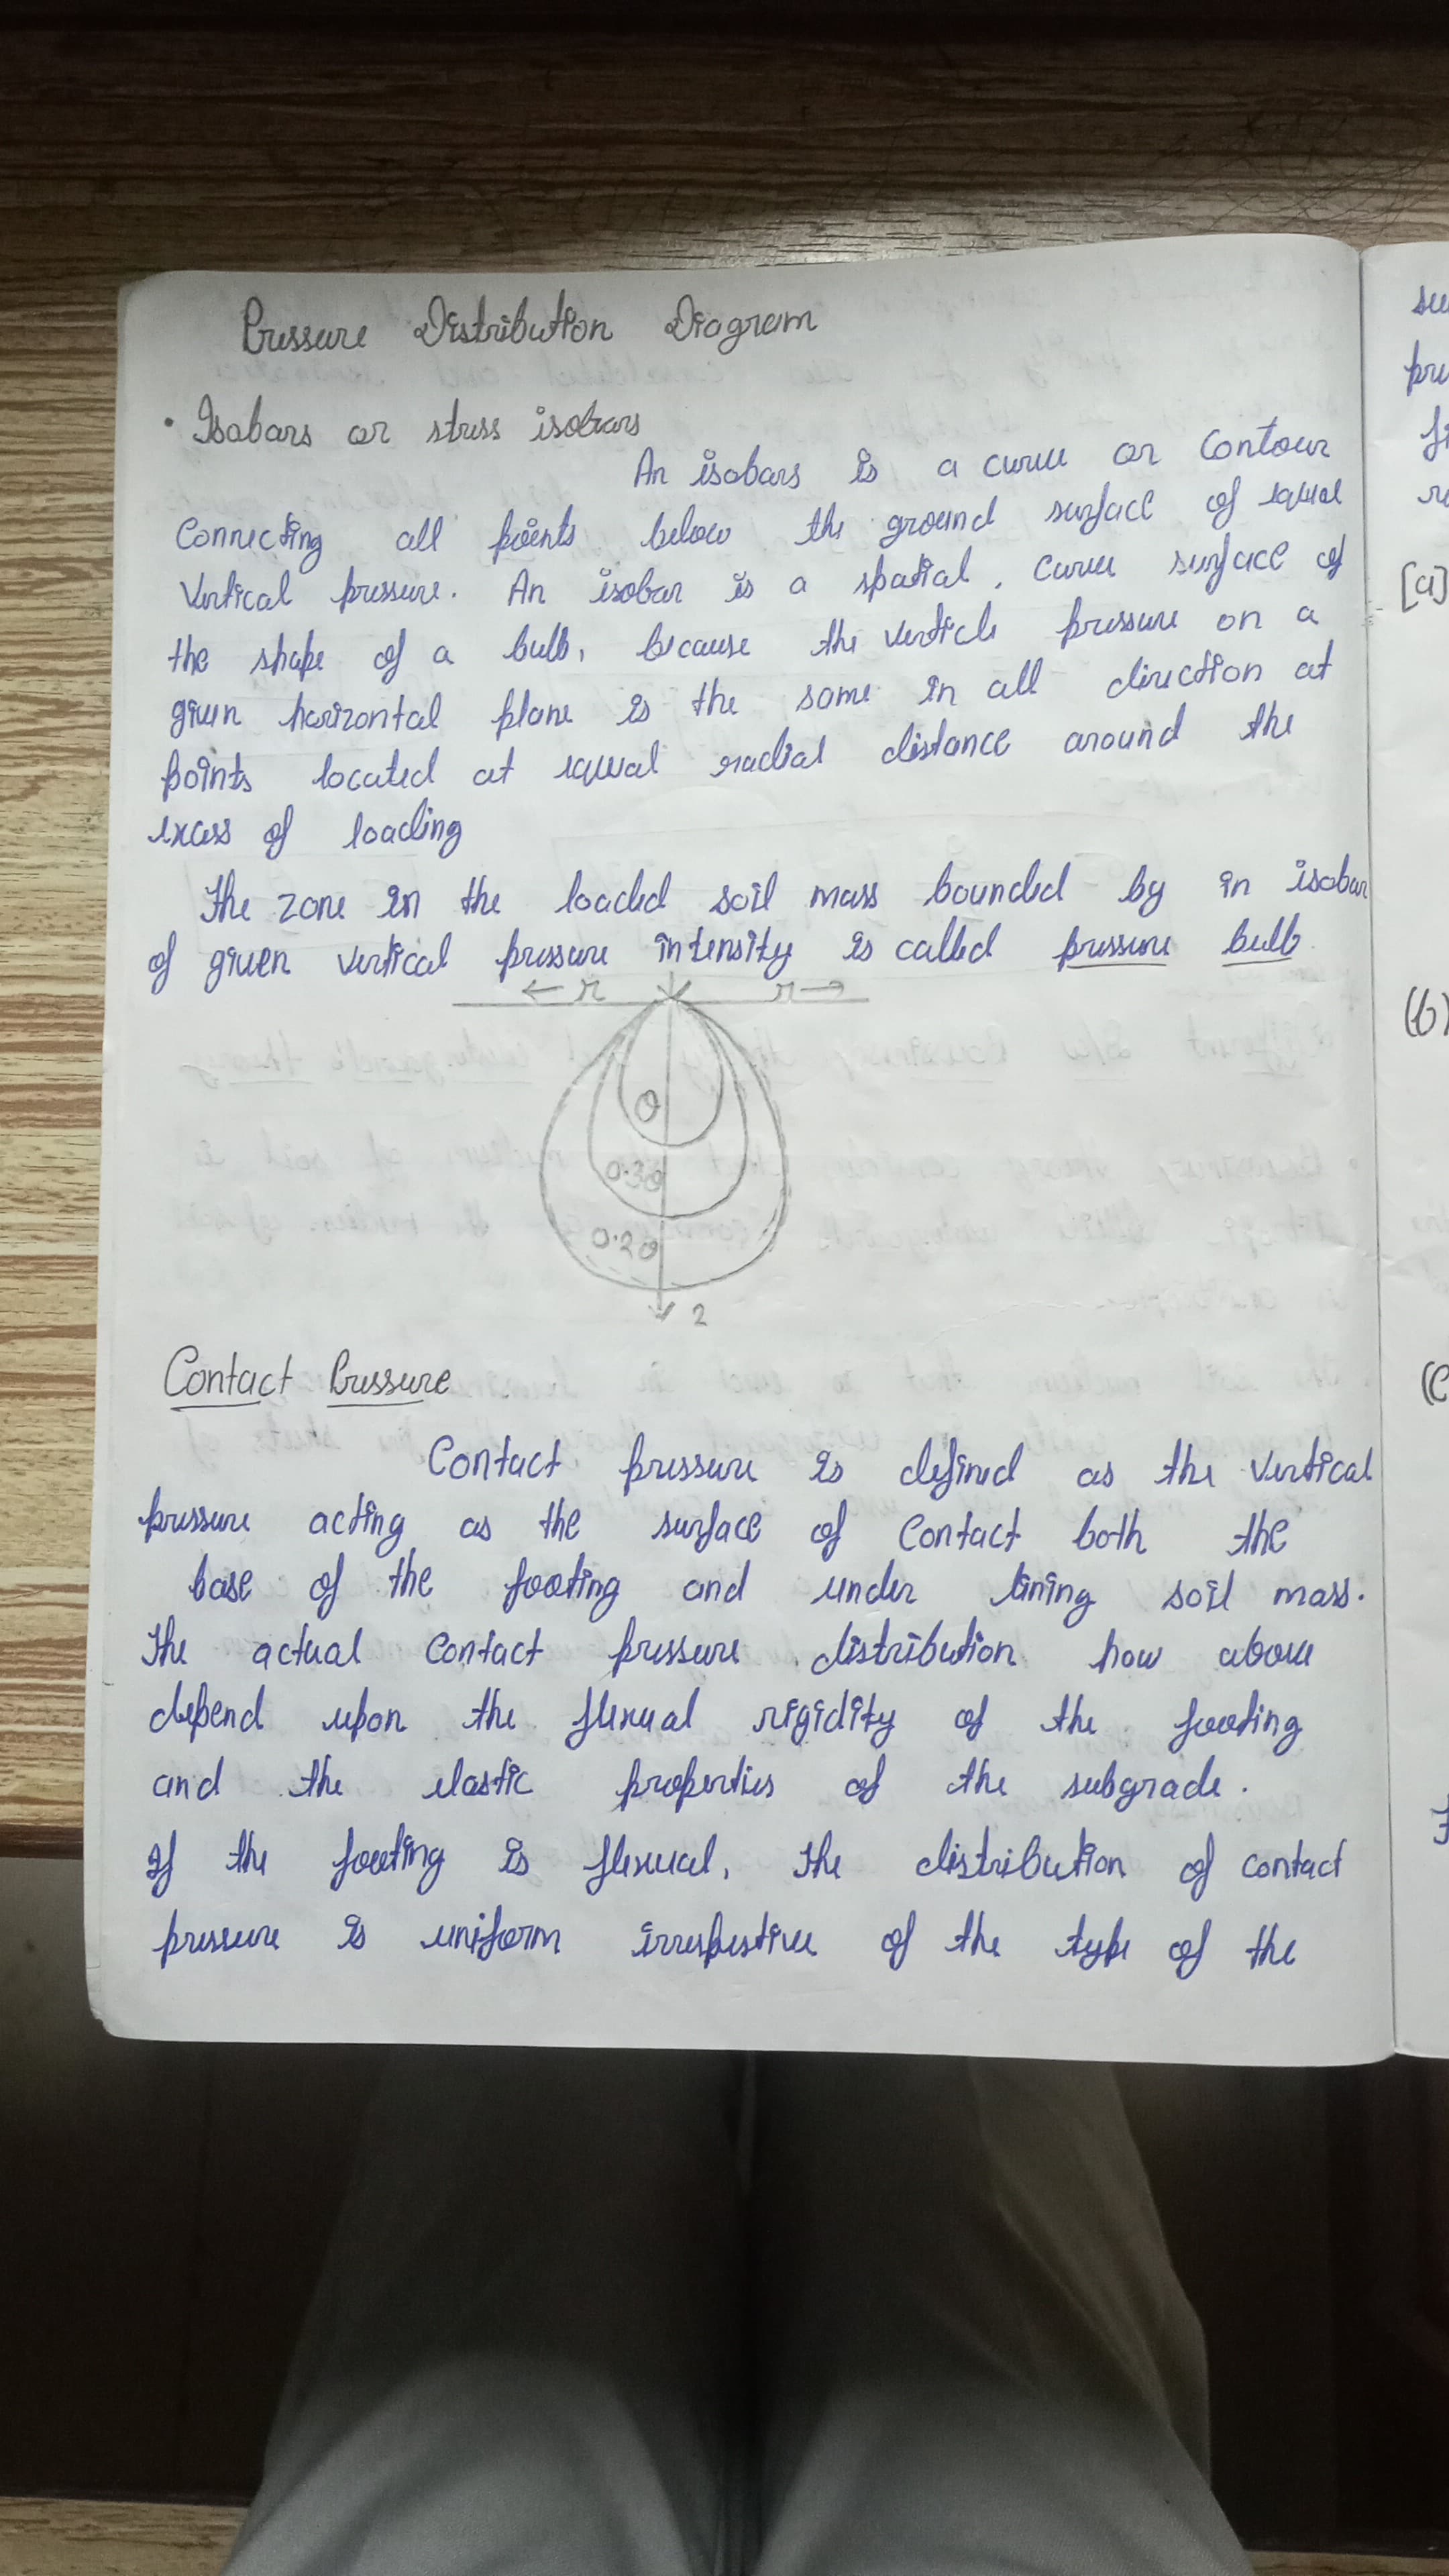 Pressure Distribution Diagram
• Isobars or stress isobars
An isobars is a curve or Contour
Connecting all points below the ground surface of equal
Vertical pressure. An isobar is a spatial, curve surface of
the shape of a bulb, because the verticle pressure on a
given horizontal plane is the same in all direction at
points located at equal radial distance around the
excess of loading
The zone in the loaded soil mass bounded by in isobar
of given vertical pressure intensity is called pressure bulb
← r r →
Q
0.3Q
0.2Q
Z
Contact Pressure
Contact pressure is defined as the vertical
pressure acting as the surface of contact both the
base of the footing and under lining soil mass.
The actual contact pressure distribution how above
depend upon the flexual rigidity of the footing
and the elastic properties of the subgrade.
If the footing is flexual, the distribution of contact
pressure is uniform irrespestive of the type of the
[a]
(b)